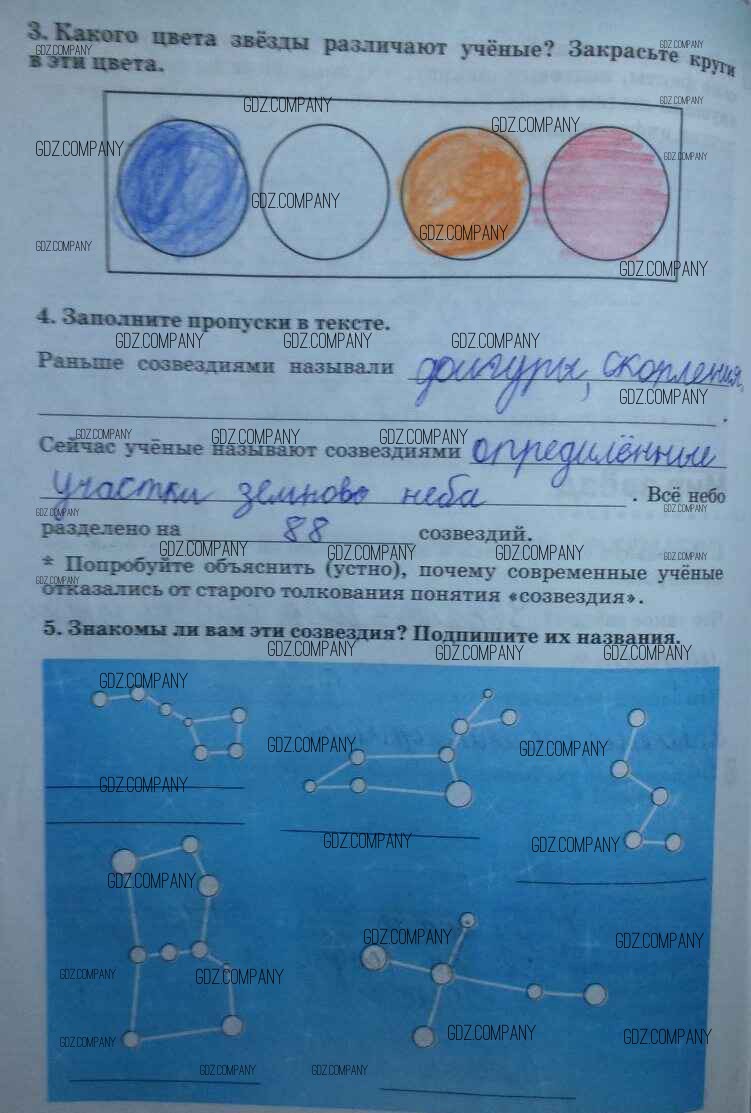 3. Какого цвета звёзды различают учёные? Закрасьте круги
в эти цвета.
4. Заполните пропуски в тексте.
Раньше созвездиями называли фигуры, скопления,
.
Сейчас учёные называют созвездиями определённые
участки земново неба . Всё небо
разделено на 88 созвездий.
* Попробуйте объяснить (устно), почему современные учёные
отказались от старого толкования понятия «созвездия».
5. Знакомы ли вам эти созвездия? Подпишите их названия.
GDZ.COMPANY